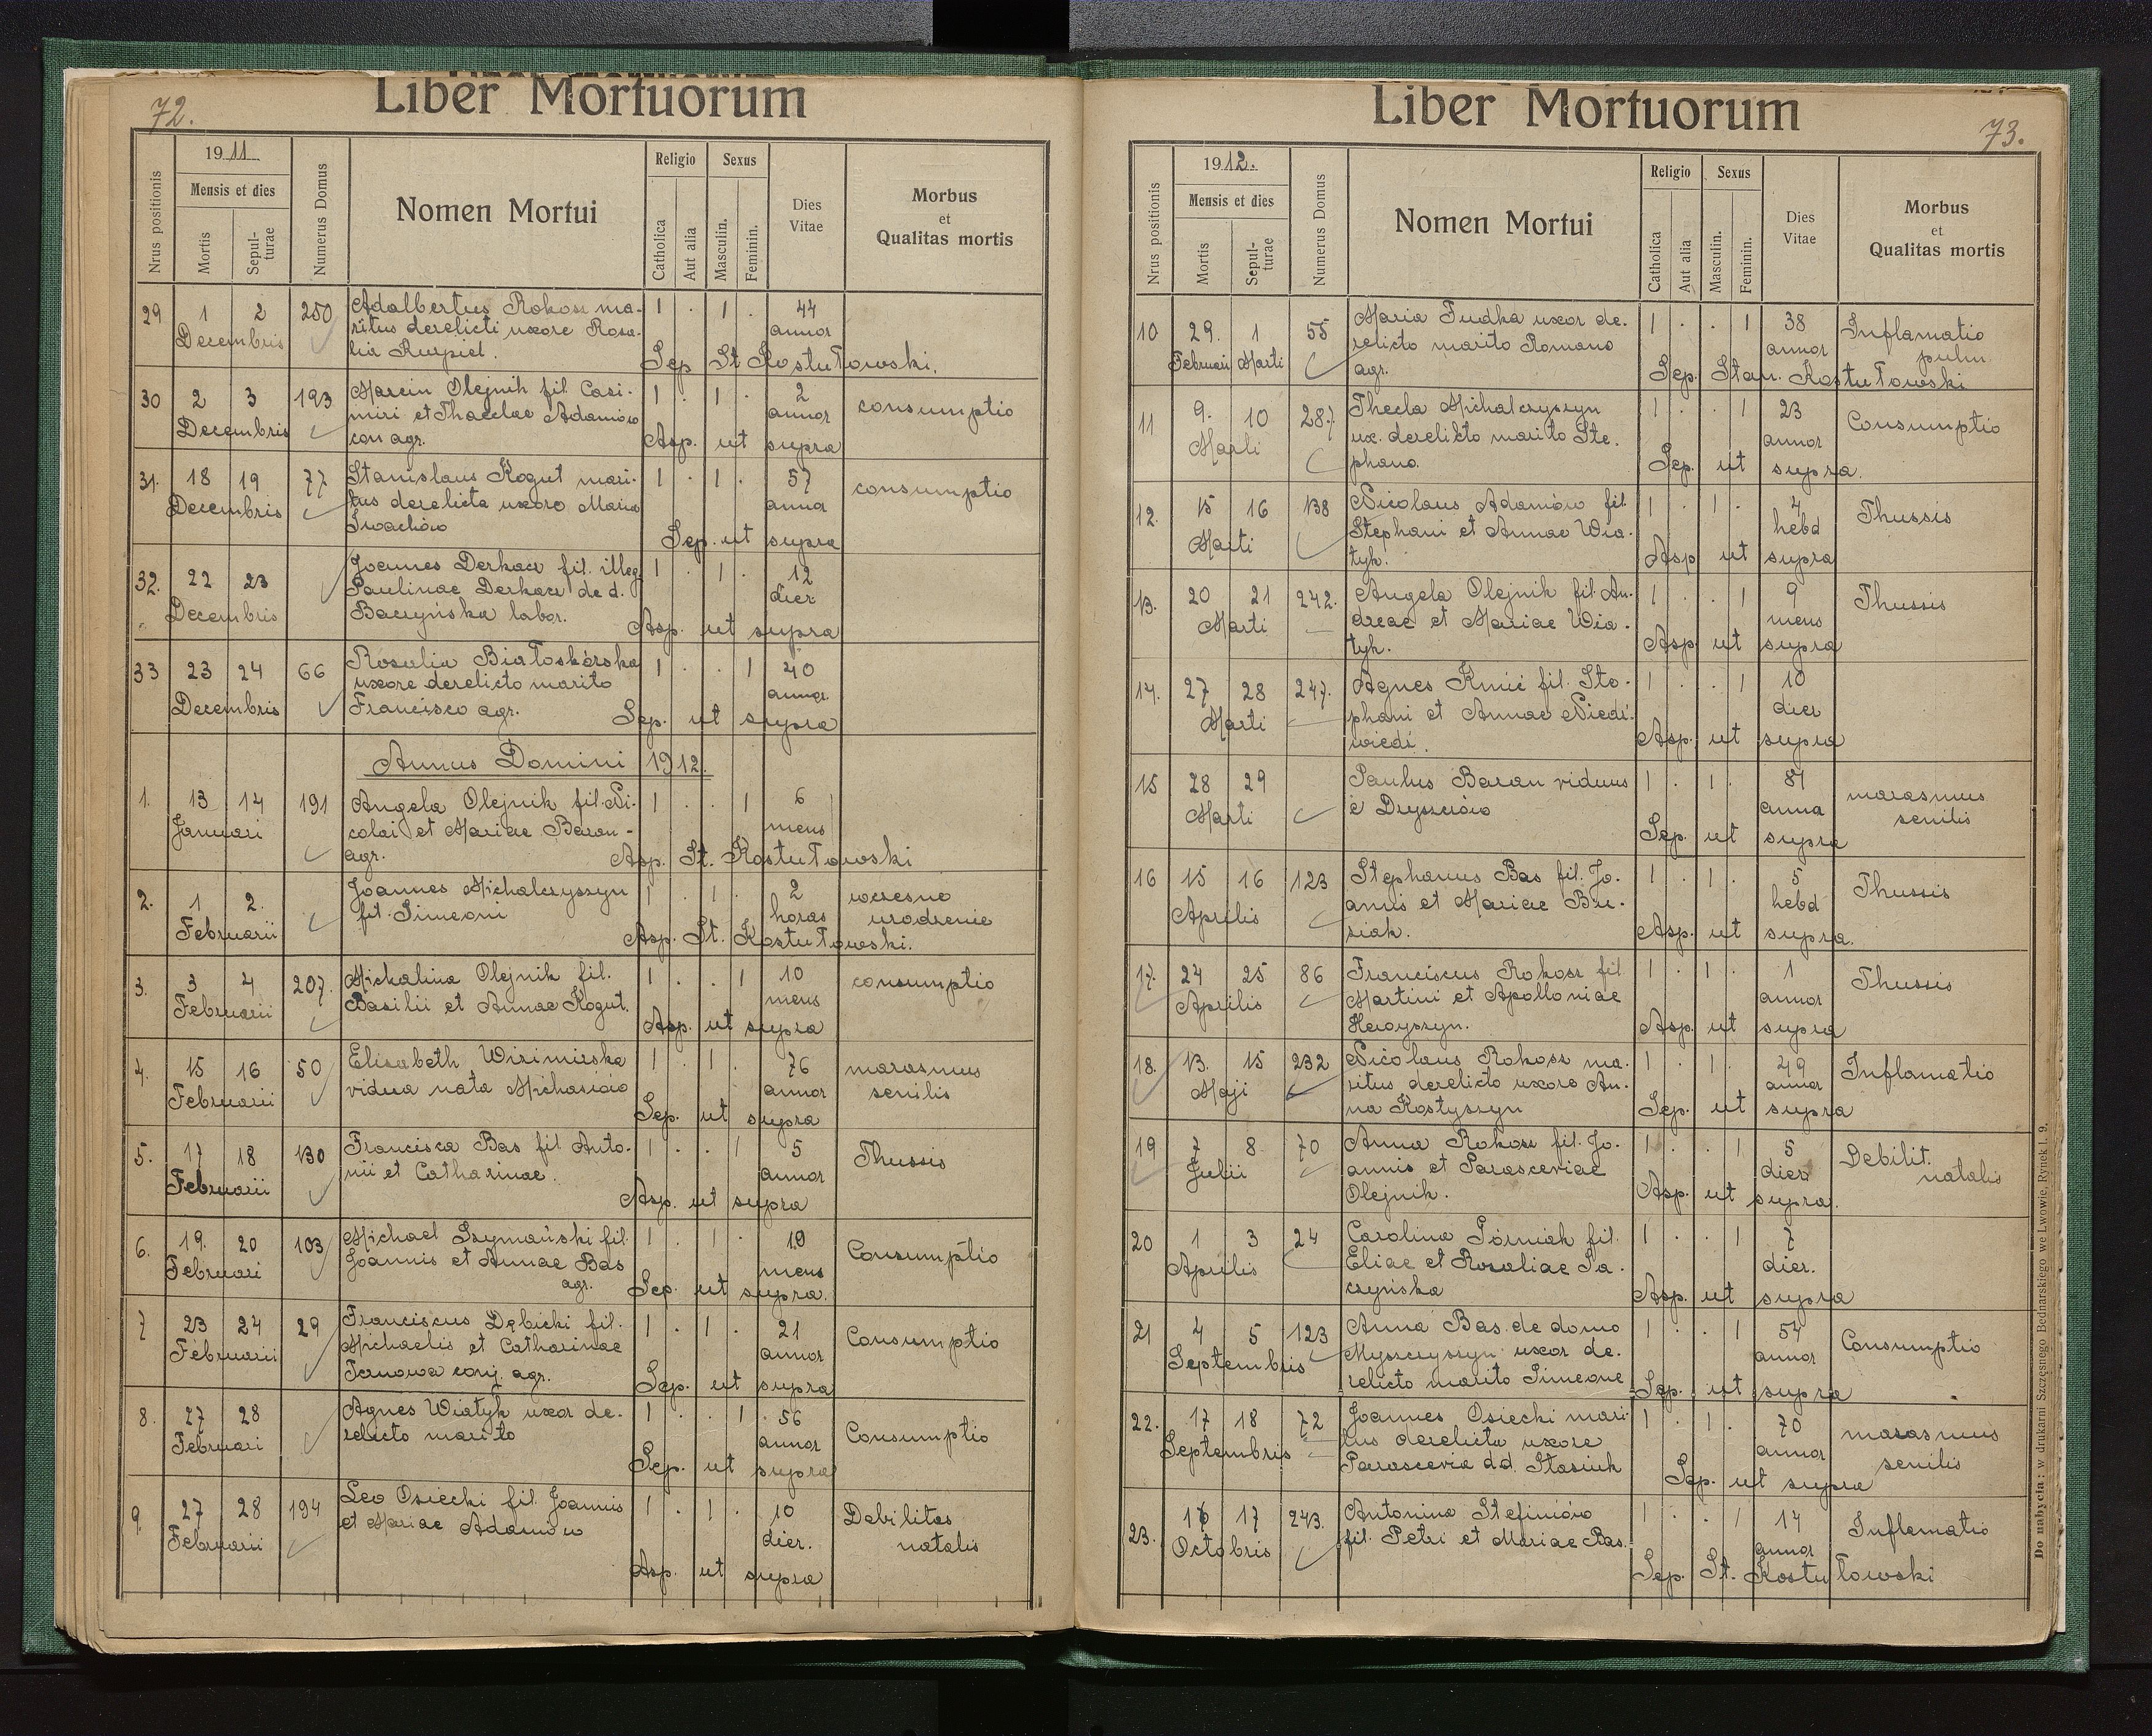 72.
Liber Mortuorum
Nrus positionis
1911
Mensis et dies
Mortis
Sepul-turae
Numerus Domus
Nomen Mortui
Religio
Catholica
Aut alia
Sexus
Masculin.
Feminin.
Dies Vitae
Morbus et Qualitas mortis
29 1 2 250 Adalbertus Rokosz ma- 1 . 1 . 44
Decembris ritus derelicti uxore Rosa- annor
lia Kurpiel. Sep St Kostułowski.
30 2 3 193 Marcin Olejnik fil. Casi- 1 . 1 . 2 consumptio
Decembris miri et Thaeclae Adamów annor
con agr. Asp. ut supra
31. 18 19 77 Stanislaus Kogut mari- 1 . 1 . 57 consumptio
Decembris tus derelicta uxoro Maria annor
Iwachów Sep. ut supra
32. 22 23 Joannes Derkacz fil. illeg. 1 . 1 . 12
Decembris Paulinae Derkacz de d. dier
Baczyńska labor. Asp. ut supra
33 23 24 66 Rosalia Białoskórska 1 . . 1 40
Decembris uxore derelicto marito annor.
Francisco agr. Sep. ut supra
Annus Domini 1912.
1. 13 14 191 Angela Olejnik fil. Ni- 1 . . 1 6
Januari colai et Mariae Baran- mens
agr. Asp. St. Kostułowski
2. 1 2. Joannes Michalczyszyn 1 . 1 . 2 wczesne
Februarii fil. Simeoni horas urodzenie
Asp. St. Kostułowski.
3. 3 4 207. Michalina Olejnik fil. 1 . . 1 10 consumptio
Februarii Basilii et Annae Kogut. mens
Asp. ut supra
4. 15 16 50 Elisabeth Wizimirska 1 . 1 . 76 marasmus
Februarii vidua nata Michasiów annor senilis
Sep. ut supra
5. 17 18 130 Francisca Bas fil. Anto- 1 . . 1 5 Thussis
Februarii nii et Catharinae. annor
Asp. ut supra
6. 19. 20 103 Michael Szymański fil. 1 . 1 . 10 Consumptio
Februari Joannis et Annae Bas mens
agr. Sep. ut supra.
7 23 24 29 Franciscus Dębicki fil. 1 . 1 . 21 Consumptio
Februarii Michaelis et Catharinae annor
Ternowa conj. agr. Sep. ut supra
8. 27 28 Agnes Wiatyk uxor de- 1 . . 1 . 56 Consumptio
Februari relicto marito annor
Sep. ut supra
9. 27 28 194 Leo Osiecki fil. Joannis 1 . 1 . 10 Debilitas
Februarii et Mariae Adamów dier. natalis
Asp. ut supra
Liber Mortuorum
73.
Nrus positionis
1912.
Mensis et dies
Mortis
Sepul-turae
Numerus Domus
Nomen Mortui
Religio
Catholica
Aut alia
Sexus
Masculin.
Feminin.
Dies Vitae
Morbus et Qualitas mortis
10 29. 1 55 Maria Dudka uxor de- 1 . . 1 38 Inflamatio
Februari Marti relicto marito Romano annor pulm.
agr. Sep. Stan. Kostułowski
11 9. 10 287. Thecla Michalczyszyn 1 . . 1 23 Consumptio
Marti ux. derelikto marito Ste- annor
phano. Sep. ut supra.
12. 15 16 138 Nicolaus Adamów fil. 1 . 1 . 4 Thussis
Marti Stephani et Annae Wia- hebd
tyk. Asp ut supra
13. 20 21 242. Angela Olejnik fil. An- 1 . . 1 9 Thussis
Marti dreae et Mariae Wia- mens
tyk. Asp. ut supra
14. 27 28 247. Agnes Kmić fil. Ste- 1 . . 1 10
Marti phani et Annae Niedź- dier
wiedź. Asp. ut supra
15 28 29 Paulus Baran viduus 1 . 1 . 81 marasmus
Marti è Dryszczów anna senilis
Sep. ut supra
16 15 16 123 Stephanus Bas fil. Jo- 1 . 1 . 5 Thussis
Aprilis annis et Mariae Bu- hebd
ziak. Asp. ut supra.
17. 24 25 86 Franciscus Rokosz fil 1 . 1 . 1 Thussis
Aprilis Martini et Apolloniae annor
Hawyszyn. Asp. ut supra
18. 13. 15 232 Nicolaus Rokosz ma- 1 . 1 . 49 Inflamatio
Maji ritus derelicto uxoro An- annor
na Kostyszyn Sep. ut supra
19 7 8 70 Anna Rokosz fil. Jo- 1 . . 1 5 Debilit.
Julii annis et Parasceviae dier natalis
Olejnik. Asp. ut supra.
20 1 3 24 Carolina Górniak fil. 1 . . 1 7
Aprilis Eliae et Rosaliae Pa- dier.
czyńska Asp. ut supra
21 4 5 123 Anna Bas. de domo 1 . . 1 54 Consumptio
Septembris Myszczyszyn uxor de- annor
relicto marito Simeone Sep. ut supra
22. 17 18 72 Joannes Osiecki mari- 1 . 1 . 70 marasmus
Septembris tus derelicta uxore annor senilis
Parascevia d.d. Stasiuk Sep. ut supra
23. 16 17 243. Antonina Stefiniów 1 . . 1 14 Inflematio
Octobris fil. Petri et Mariae Bas. annor
Sep. St. Kostułowski
Do nabycia: w drukarni Szczęsnego Bednarskiego we Lwowie, Rynek l. 9.